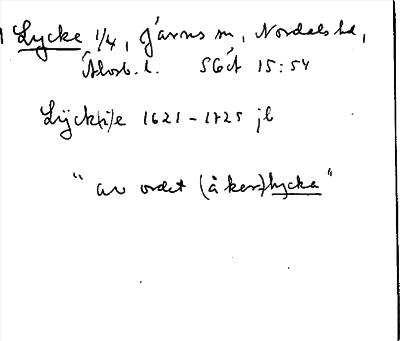 Lycke 1/4, Järns sn, Nordals hd,
Älvsb. l. SGÄ 15:54
Lijck(i)e 1621 - 1725 jb
"av ordet (åker-)lycka"